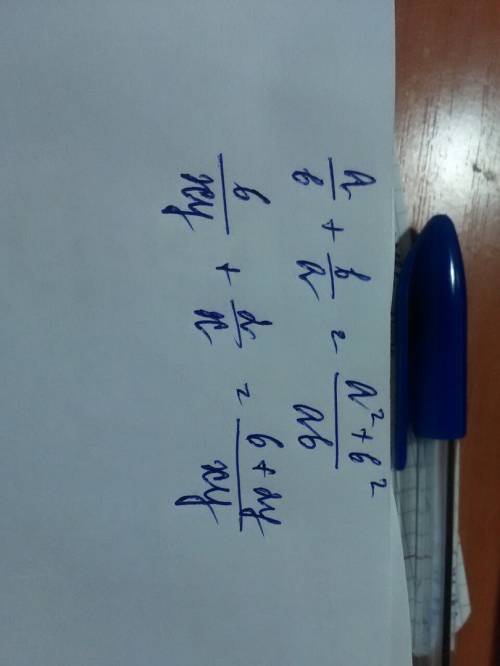 a/b + b/a = a² + b²/ab
b/xy + a/x = b + ay/xy